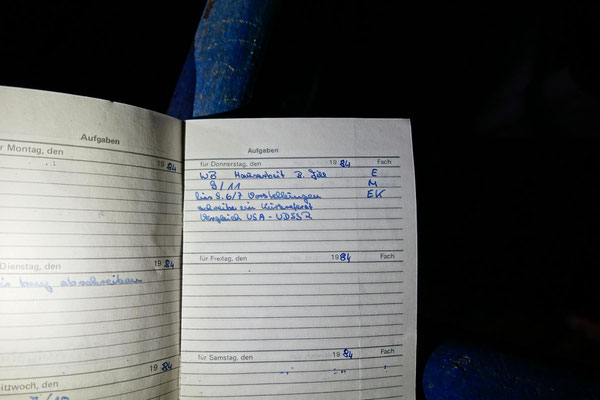 Aufgaben
r Montag, den 1984
Dienstag, den 1984
abschreiben
1984
ittwoch, den
Aufgaben
für Donnerstag, den 1984 Fach
WB Hausarbeit E
8/11 M
lies S. 6/7 Vorstellungen EK
schreibe ein Kurzreferat
Vergleich USA - UDSSR
für Freitag, den 1984 Fach
für Samstag, den 1984 Fach